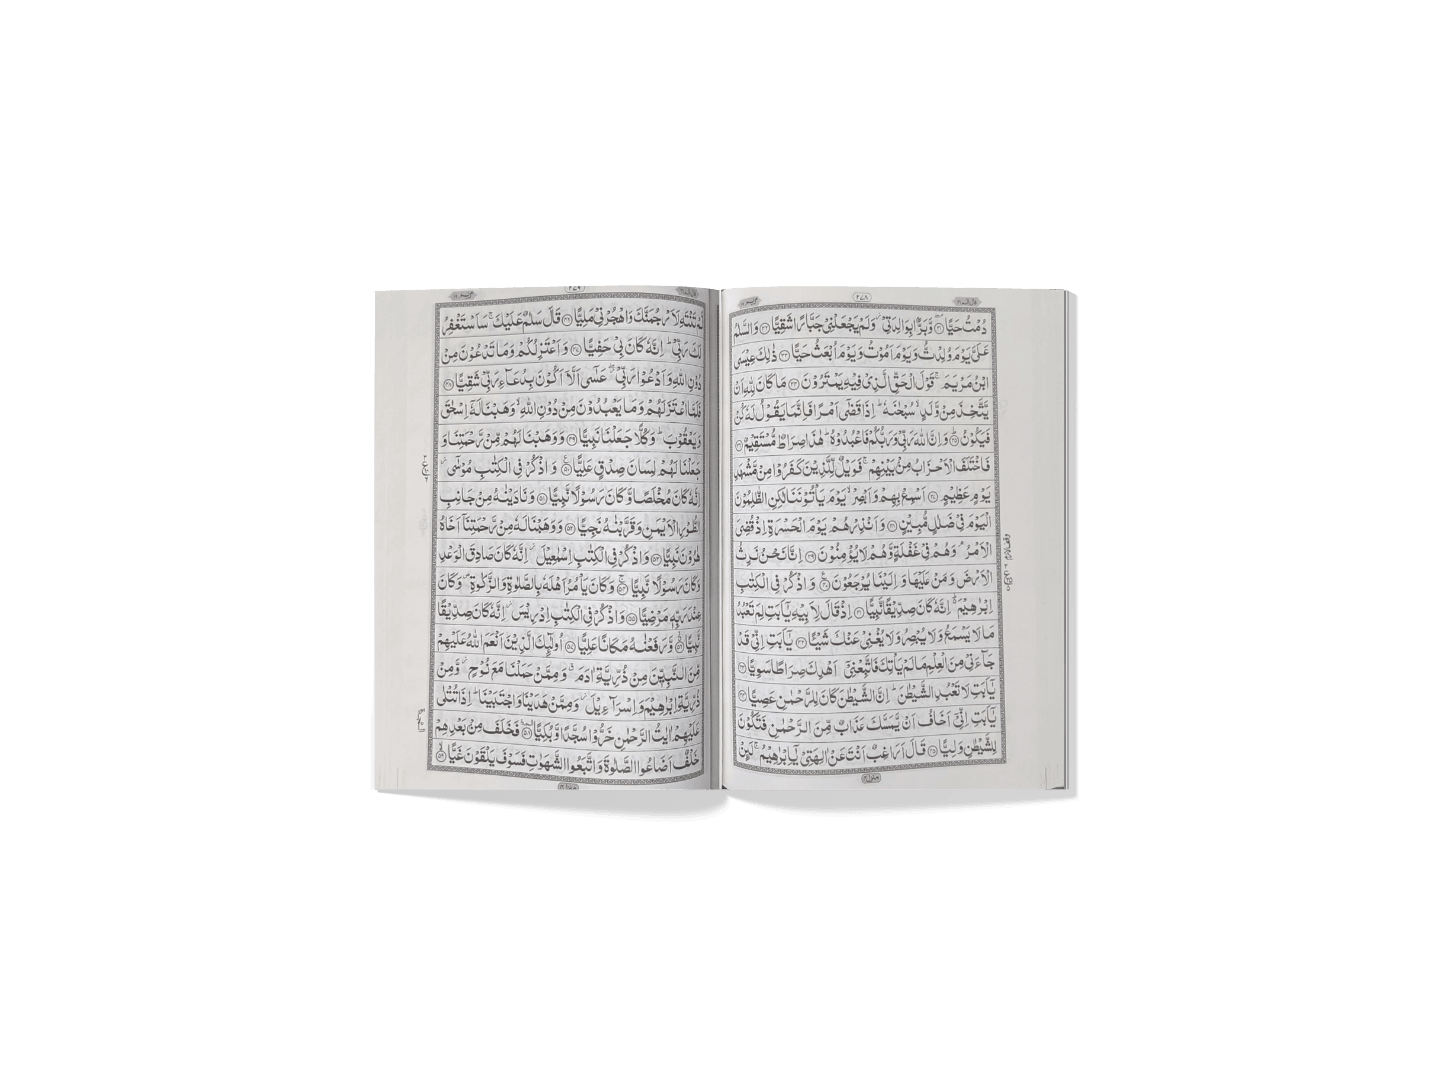 قال الم ١٦
٢٧٨
مريم ١٩
دُمْتُ حَيًّا ۝٣١ وَّبَرًّۢا بِوَالِدَتِيْ ؗ وَلَمْ يَجْعَلْنِيْ جَبَّارًا شَقِيًّا ۝٣٢ وَالسَّلٰمُ
عَلَيَّ يَوْمَ وُلِدْتُّ وَيَوْمَ اَمُوْتُ وَيَوْمَ اُبْعَثُ حَيًّا ۝٣٣ ذٰلِكَ عِيْسَى
ابْنُ مَرْيَمَ ۚ قَوْلَ الْحَقِّ الَّذِيْ فِيْهِ يَمْتَرُوْنَ ۝٣٤ مَا كَانَ لِلّٰهِ اَنْ
يَّتَّخِذَ مِنْ وَّلَدٍ ۙ سُبْحٰنَهٗ ؕ اِذَا قَضٰۤى اَمْرًا فَاِنَّمَا يَقُوْلُ لَهٗ كُنْ
فَيَكُوْنُ ۝٣٥ وَاِنَّ اللّٰهَ رَبِّيْ وَرَبُّكُمْ فَاعْبُدُوْهُ ؕ هٰذَا صِرَاطٌ مُّسْتَقِيْمٌ ۝٣٦
فَاخْتَلَفَ الْاَحْزَابُ مِنْۢ بَيْنِهِمْ ۚ فَوَيْلٌ لِّلَّذِيْنَ كَفَرُوْا مِنْ مَّشْهَدِ
يَوْمٍ عَظِيْمٍ ۝٣٧ اَسْمِعْ بِهِمْ وَاَبْصِرْ ۙ يَوْمَ يَاْتُوْنَنَا لٰكِنِ الظّٰلِمُوْنَ
الْيَوْمَ فِيْ ضَلٰلٍ مُّبِيْنٍ ۝٣٨ وَاَنْذِرْهُمْ يَوْمَ الْحَسْرَةِ اِذْ قُضِيَ
الْاَمْرُ ۘ وَهُمْ فِيْ غَفْلَةٍ وَّهُمْ لَا يُؤْمِنُوْنَ ۝٣٩ اِنَّا نَحْنُ نَرِثُ
الْاَرْضَ وَمَنْ عَلَيْهَا وَاِلَيْنَا يُرْجَعُوْنَ ۝٤٠ وَاذْكُرْ فِي الْكِتٰبِ
اِبْرٰهِيْمَ ۬ؕ اِنَّهٗ كَانَ صِدِّيْقًا نَّبِيًّا ۝٤١ اِذْ قَالَ لِاَبِيْهِ يٰۤاَبَتِ لِمَ تَعْبُدُ
مَا لَا يَسْمَعُ وَلَا يُبْصِرُ وَلَا يُغْنِيْ عَنْكَ شَيْئًا ۝٤٢ يٰۤاَبَتِ اِنِّيْ قَدْ
جَآءَنِيْ مِنَ الْعِلْمِ مَا لَمْ يَاْتِكَ فَاتَّبِعْنِيْۤ اَهْدِكَ صِرَاطًا سَوِيًّا ۝٤٣
يٰۤاَبَتِ لَا تَعْبُدِ الشَّيْطٰنَ ؕ اِنَّ الشَّيْطٰنَ كَانَ لِلرَّحْمٰنِ عَصِيًّا ۝٤٤
يٰۤاَبَتِ اِنِّيْۤ اَخَافُ اَنْ يَّمَسَّكَ عَذَابٌ مِّنَ الرَّحْمٰنِ فَتَكُوْنَ
لِلشَّيْطٰنِ وَلِيًّا ۝٤٥ قَالَ اَرَاغِبٌ اَنْتَ عَنْ اٰلِهَتِيْ يٰۤاِبْرٰهِيْمُ ۚ لَئِنْ
منزل ٤
٢٧٩
لَّمْ تَنْتَهِ لَاَرْجُمَنَّكَ وَاهْجُرْنِيْ مَلِيًّا ۝٤٦ قَالَ سَلٰمٌ عَلَيْكَ ۚ سَاَسْتَغْفِرُ
لَكَ رَبِّيْ ؕ اِنَّهٗ كَانَ بِيْ حَفِيًّا ۝٤٧ وَاَعْتَزِلُكُمْ وَمَا تَدْعُوْنَ مِنْ
دُوْنِ اللّٰهِ وَاَدْعُوْا رَبِّيْ ۖ عَسٰۤى اَلَّاۤ اَكُوْنَ بِدُعَآءِ رَبِّيْ شَقِيًّا ۝٤٨
فَلَمَّا اعْتَزَلَهُمْ وَمَا يَعْبُدُوْنَ مِنْ دُوْنِ اللّٰهِ ۙ وَهَبْنَا لَهٗۤ اِسْحٰقَ
وَيَعْقُوْبَ ؕ وَكُلًّا جَعَلْنَا نَبِيًّا ۝٤٩ وَوَهَبْنَا لَهُمْ مِّنْ رَّحْمَتِنَا وَ
جَعَلْنَا لَهُمْ لِسَانَ صِدْقٍ عَلِيًّا ۝٥٠ وَاذْكُرْ فِي الْكِتٰبِ مُوْسٰۤى ؗ
اِنَّهٗ كَانَ مُخْلَصًا وَّكَانَ رَسُوْلًا نَّبِيًّا ۝٥١ وَنَادَيْنٰهُ مِنْ جَانِبِ
الطُّوْرِ الْاَيْمَنِ وَقَرَّبْنٰهُ نَجِيًّا ۝٥٢ وَوَهَبْنَا لَهٗ مِنْ رَّحْمَتِنَاۤ اَخَاهُ
هٰرُوْنَ نَبِيًّا ۝٥٣ وَاذْكُرْ فِي الْكِتٰبِ اِسْمٰعِيْلَ ؗ اِنَّهٗ كَانَ صَادِقَ الْوَعْدِ
وَكَانَ رَسُوْلًا نَّبِيًّا ۝٥٤ وَكَانَ يَاْمُرُ اَهْلَهٗ بِالصَّلٰوةِ وَالزَّكٰوةِ ۪ وَكَانَ
عِنْدَ رَبِّهٖ مَرْضِيًّا ۝٥٥ وَاذْكُرْ فِي الْكِتٰبِ اِدْرِيْسَ ؗ اِنَّهٗ كَانَ صِدِّيْقًا
نَّبِيًّا ۝٥٦ وَّرَفَعْنٰهُ مَكَانًا عَلِيًّا ۝٥٧ اُولٰٓئِكَ الَّذِيْنَ اَنْعَمَ اللّٰهُ عَلَيْهِمْ
مِّنَ النَّبِيّٖنَ مِنْ ذُرِّيَّةِ اٰدَمَ ۗ وَمِمَّنْ حَمَلْنَا مَعَ نُوْحٍ ؗ وَّمِنْ
ذُرِّيَّةِ اِبْرٰهِيْمَ وَاِسْرَآءِيْلَ ؗ وَمِمَّنْ هَدَيْنَا وَاجْتَبَيْنَا ؕ اِذَا تُتْلٰى
عَلَيْهِمْ اٰيٰتُ الرَّحْمٰنِ خَرُّوْا سُجَّدًا وَّبُكِيًّا ۝٥٨ فَخَلَفَ مِنْۢ بَعْدِهِمْ
خَلْفٌ اَضَاعُوا الصَّلٰوةَ وَاتَّبَعُوا الشَّهَوٰتِ فَسَوْفَ يَلْقَوْنَ غَيًّا ۝٥٩